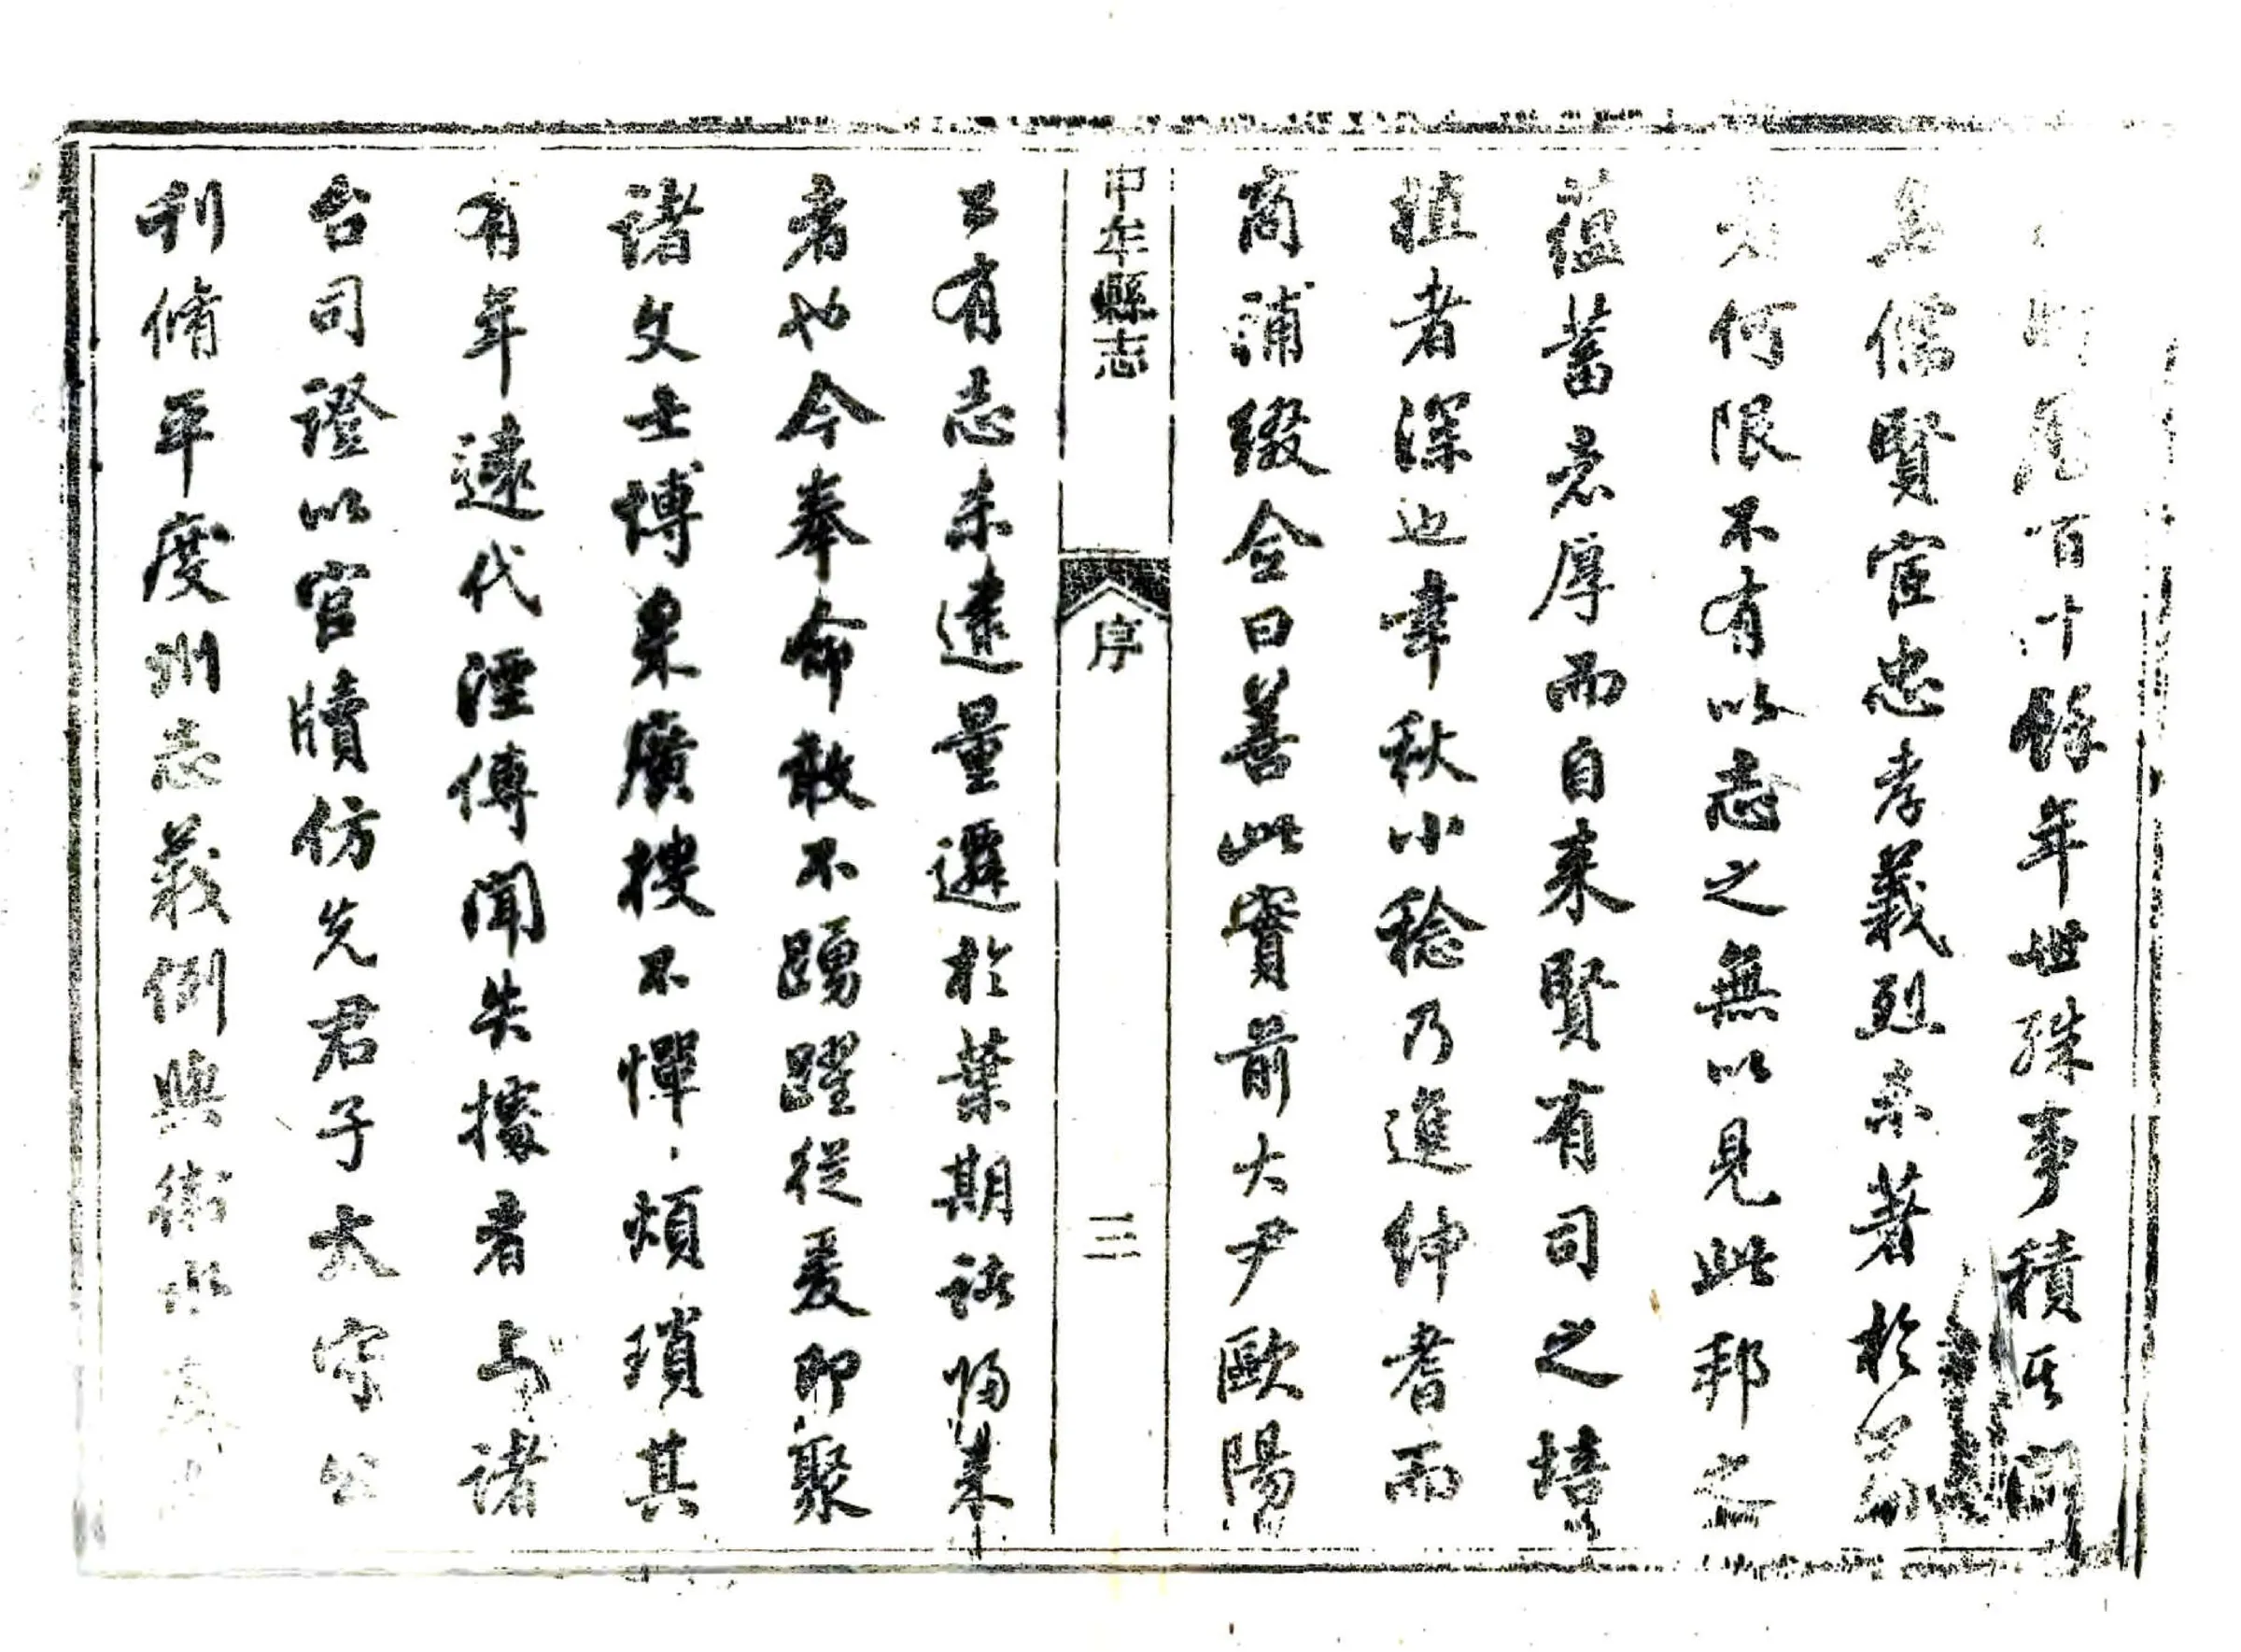 百十餘年世殊事積其間
名儒賢宦忠孝義烈之著於前
者何限不有以志之無以見此邦之
蘊蓄者厚而自来賢有司之培
植者深也聿秋小稔乃進紳耆而
商浦綴僉曰善此實前大尹歐陽
中牟縣志
序
三
公有志未逮量遷於葉期該歸来
者也今奉命敢不踴躍從爰即聚
諸文士博采廣搜不憚煩瑣其
有年遠代湮傳聞失據者上諸
台司證以官牘仿先君子太守公
刊脩平度州志義例與衛